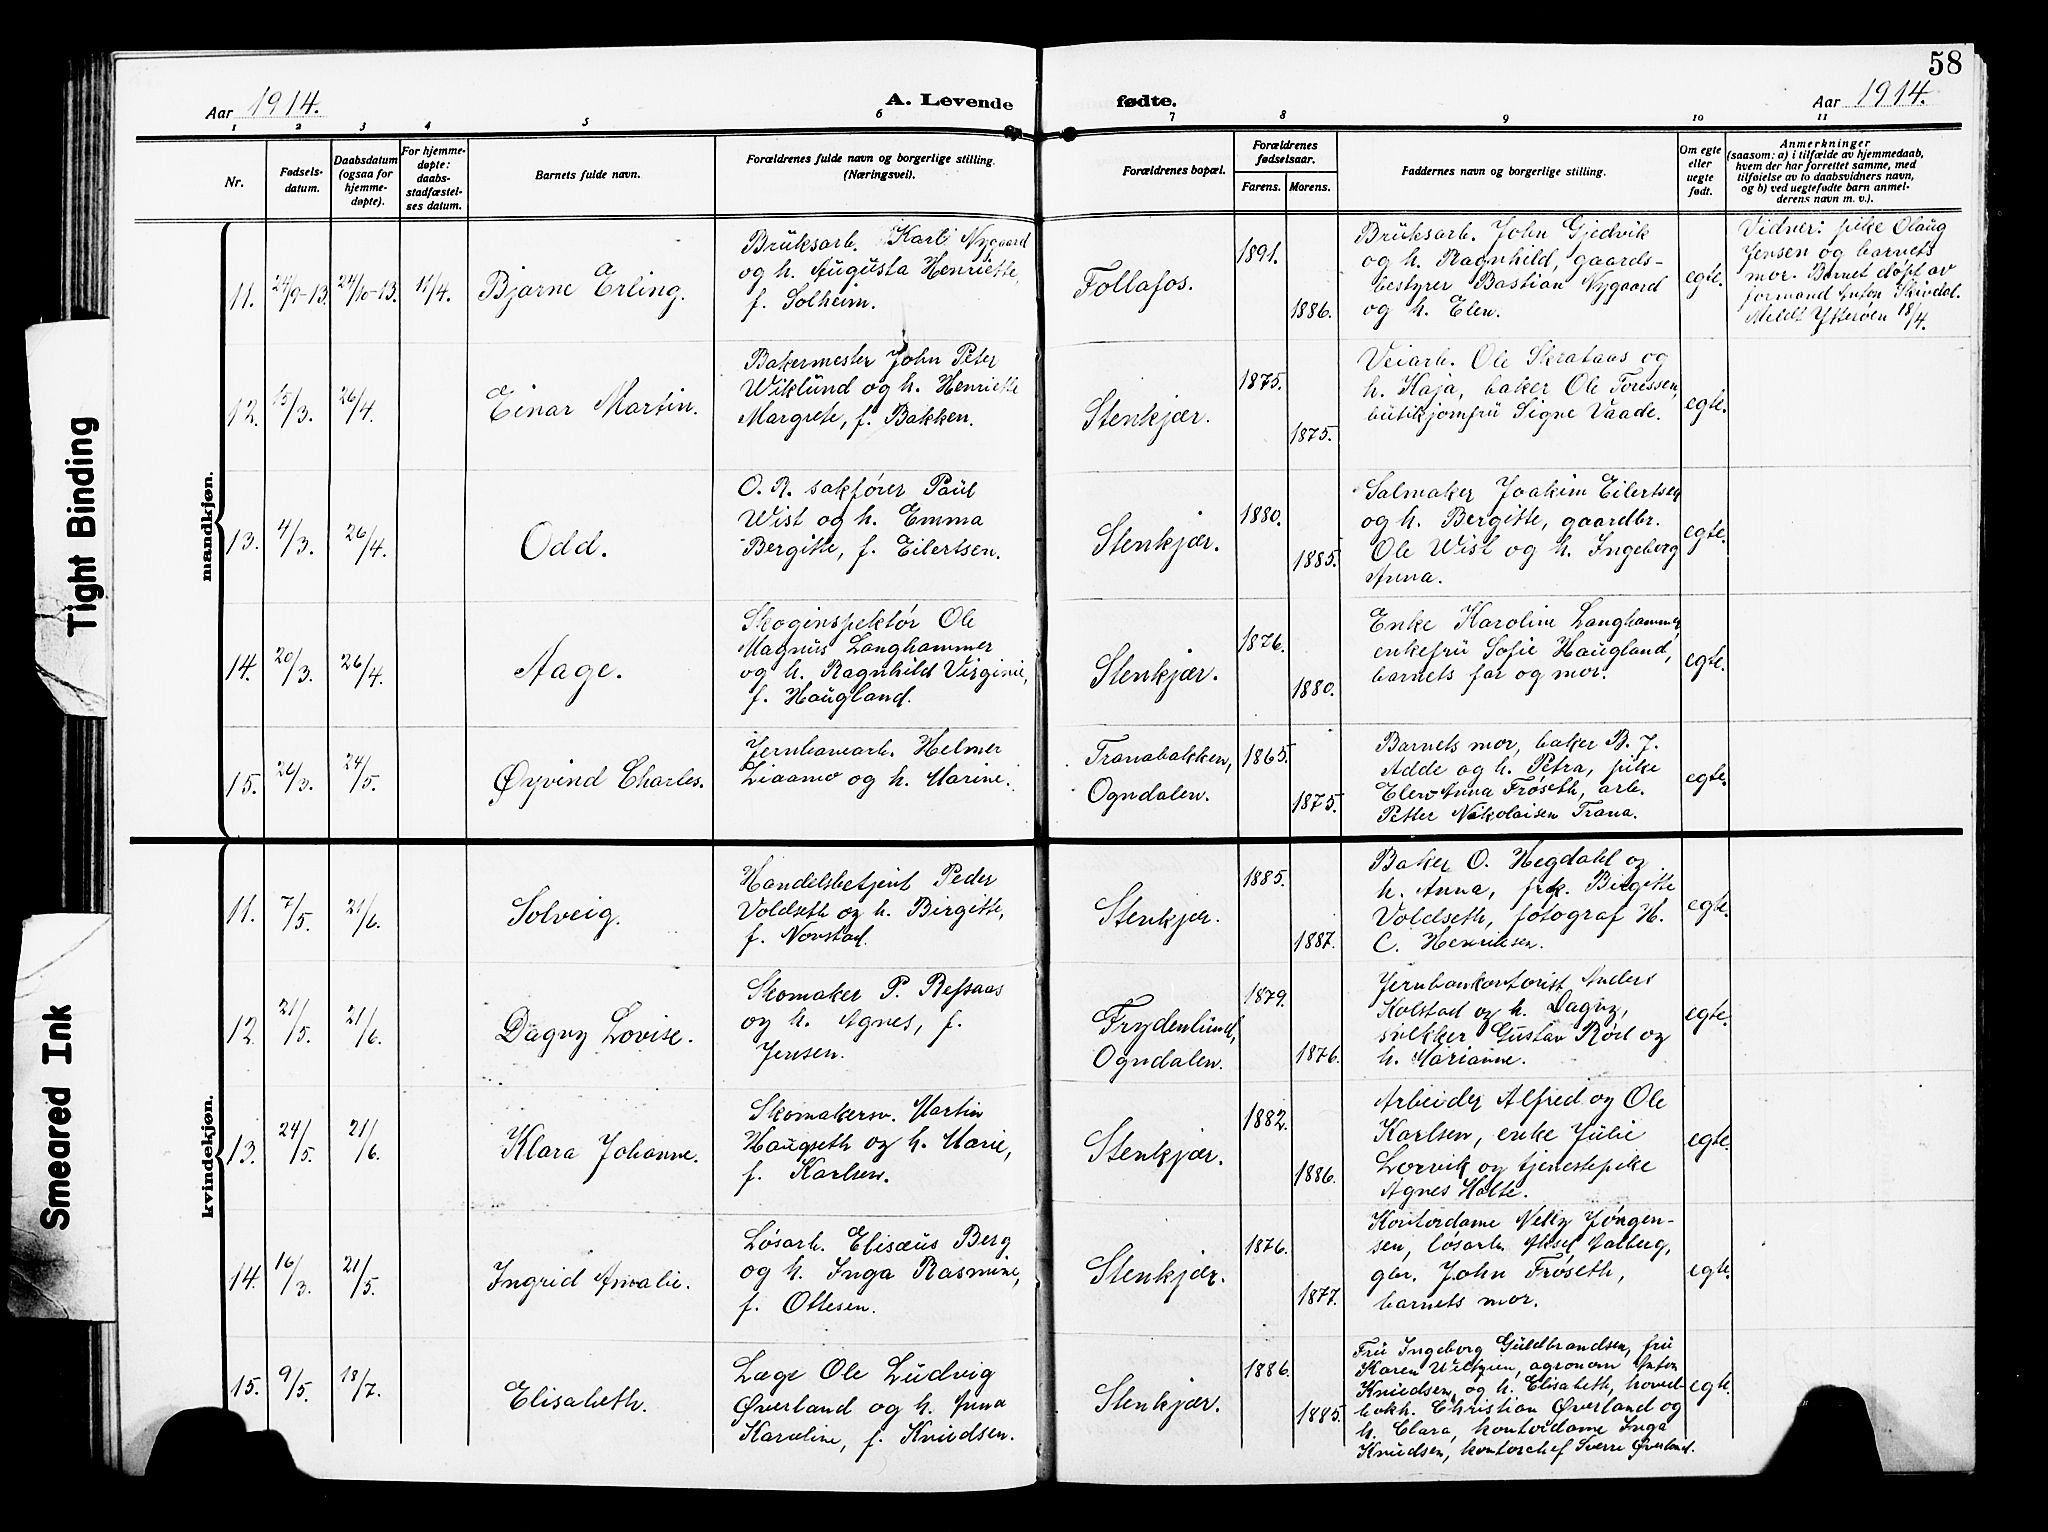 58
Aar 1914.
A. Levende
fødte.
Aar 1914.
1 2 3 4 5 6 7 8 9 10 11
Nr.
Fødsels-
datum.
Daabsdatum
(ogsaa for
hjemme-
døpte).
For hjemme-
døpte:
daabs-
stadfæstel-
ses datum.
Barnets fulde navn.
Forældrenes fulde navn og borgerlige stilling.
(Næringsvei).
Forældrenes bopæl.
Forældrenes
fødselsaar.
Farens. Morens.
Faddernes navn og borgerlige stilling.
Om egte
eller
uegte
født.
Anmerkninger
(saasom: a) i tilfælde av hjemmedaab,
hvem der har forrettet samme, med
tilføielse av to daabsvidners navn,
og b) ved uegtefødte barn anmel-
derens navn m. v.).
Tight Binding
Smeared Ink
mandkjøn.
11. 24/9-13. 24/10-13. 11/4. Bjarne Erling.
Brüksarb. Karl Nygaard
og h. Augusta Henriette,
f. Solheim.
Follafos.
1891.
1886.
Brüksarb. John Gjedvik
og h. Ragnhild, gaards-
bestyrer Bastian Nygaard
og h. Elen.
egte.
Vidner: pike Olaug
Jensen og barnets
mor. Barnet døpt av
formand Anton Skivdal.
Meldt Ytterøen 18/4.
12. 15/3. 26/4. Einar Martin.
Bakermester John Peter
Wiklünd og h. Henriette
Margrete, f. Bakken.
Stenkjær.
1875.
1875.
Veiarb. Ole Skrataas og
h. Kaja, baker Ole Foressen,
bütikjomfrü Signe Vaade.
egte.
13. 4/3. 26/4. Odd.
O. R. sakfører Paül
Wist og h. Emma
Bergitte, f. Eilertsen.
Stenkjær.
1880.
1885.
Salmaker Joakim Eilertsen
og h. Bergitte, gaardbr.
Ole Wist og h. Ingeborg
Anna.
egte.
14. 20/3. 26/4. Aage.
Skoginspektør Ole
Magnüs Langhammer
og h. Ragnhild Virginie,
f. Haügland.
Stenkjær.
1876.
1880.
Enke Karoline Langhammer,
enkefrü Sofie Haügland,
barnets far og mor.
egte.
15. 26/3. 24/5. Øyvind Charles.
Jernbanearb. Helmer
Liaamo og h. Marine.
Tranabakken,
Ogndalen.
1865.
1875.
Barnets mor, baker B. J.
Adde og h. Petra, pike
Elen Anna Frøseth, arb.
Petter Nikolaisen Trana.
egte.
kvindekjøn.
11. 7/5. 21/6. Solveig.
Handelsbetjent Peder
Voldseth og h. Birgitte,
f. Novstad.
Stenkjær.
1885.
1887.
Baker O. Hegdahl og
h. Anna, frk. Birgitte
Voldseth, fotograf H.
C. Henriksen.
egte.
12. 21/5. 21/6. Dagny Lovise.
Skomaker P. Refsaas
og h. Agnes, f.
Jensen.
Frydenlünd,
Ogndalen.
1879.
1876.
Jernbankontorist Anders
Holstad og h. Dagny,
snekker Güstav Röst og
h. Marianne.
egte.
13. 24/5. 21/6. Klara Johanne.
Skomakersv. Martin
Haügseth og h. Marie,
f. Karlsen.
Stenkjær.
1882.
1886.
Arbeider Alfred og Ole
Karlsen, enke Jülie
Lorvik og tjenestepike
Agnes Holte.
egte.
14. 16/3. 21/5. Ingrid Amalie.
Løsarb. Elisæüs Berg
og h. Inga Rasmine,
f. Ottesen.
Stenkjær.
1876.
1877.
Kontordame Nelly Jørgen-
sen, løsarb. Aksel Aalberg,
gbr. John Frøseth,
barnets mor.
egte.
15. 9/5. 18/7. Elisabeth.
Læge Ole Lüdvig
Øverland og h. Anna
Karoline, f. Knüdsen.
Stenkjær.
1886.
1885.
Frü Ingeborg Güldbrandsen, frü
Karen agronom Anton
Knüdsen, og h. Elisabeth, hoved-
bokh. Christian Øverland og
h. Clara, kontordame Inga
Knüdsen, kontorchef Sverre Øverland.
egte.